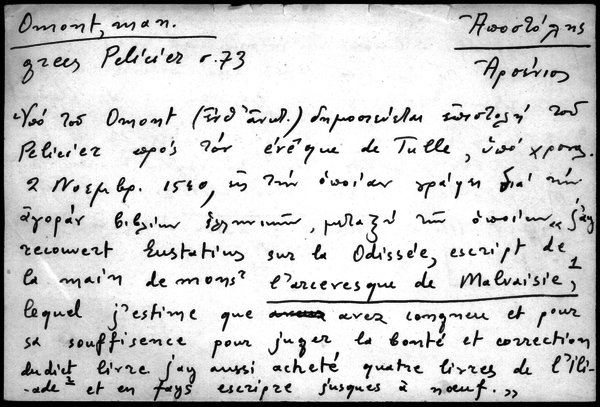 Omont, man. Ἀποστόλης
grecs Pelicier σ. 73 Ἀρσένιος
Ὑπό τοῦ Omont (ἔνθ' ἀνωτ.) δημοσιεύεται ἐπιστολή τοῦ
Pelicier πρός τόν évêque de Tulle, ὑπό χρονολ.
2 Νοεμβρ. 1540, εἰς τήν ὁποίαν γράφει διά τήν
ἀγοράν βιβλίων ἑλληνικῶν, μεταξύ τῶν ὁποίων « j'ay
recouvert Eustatius sur la Odissée, escript de
la main de monsr l'arcevesque de Malvaisie,1
lequel j'estime que avez congneu et pour
sa souffisence pour juger la bonté et correction
dudict livre j'ay aussi acheté quatre livres de l'ili-
-ade2 et en fays escripre jusques à nœuf. »